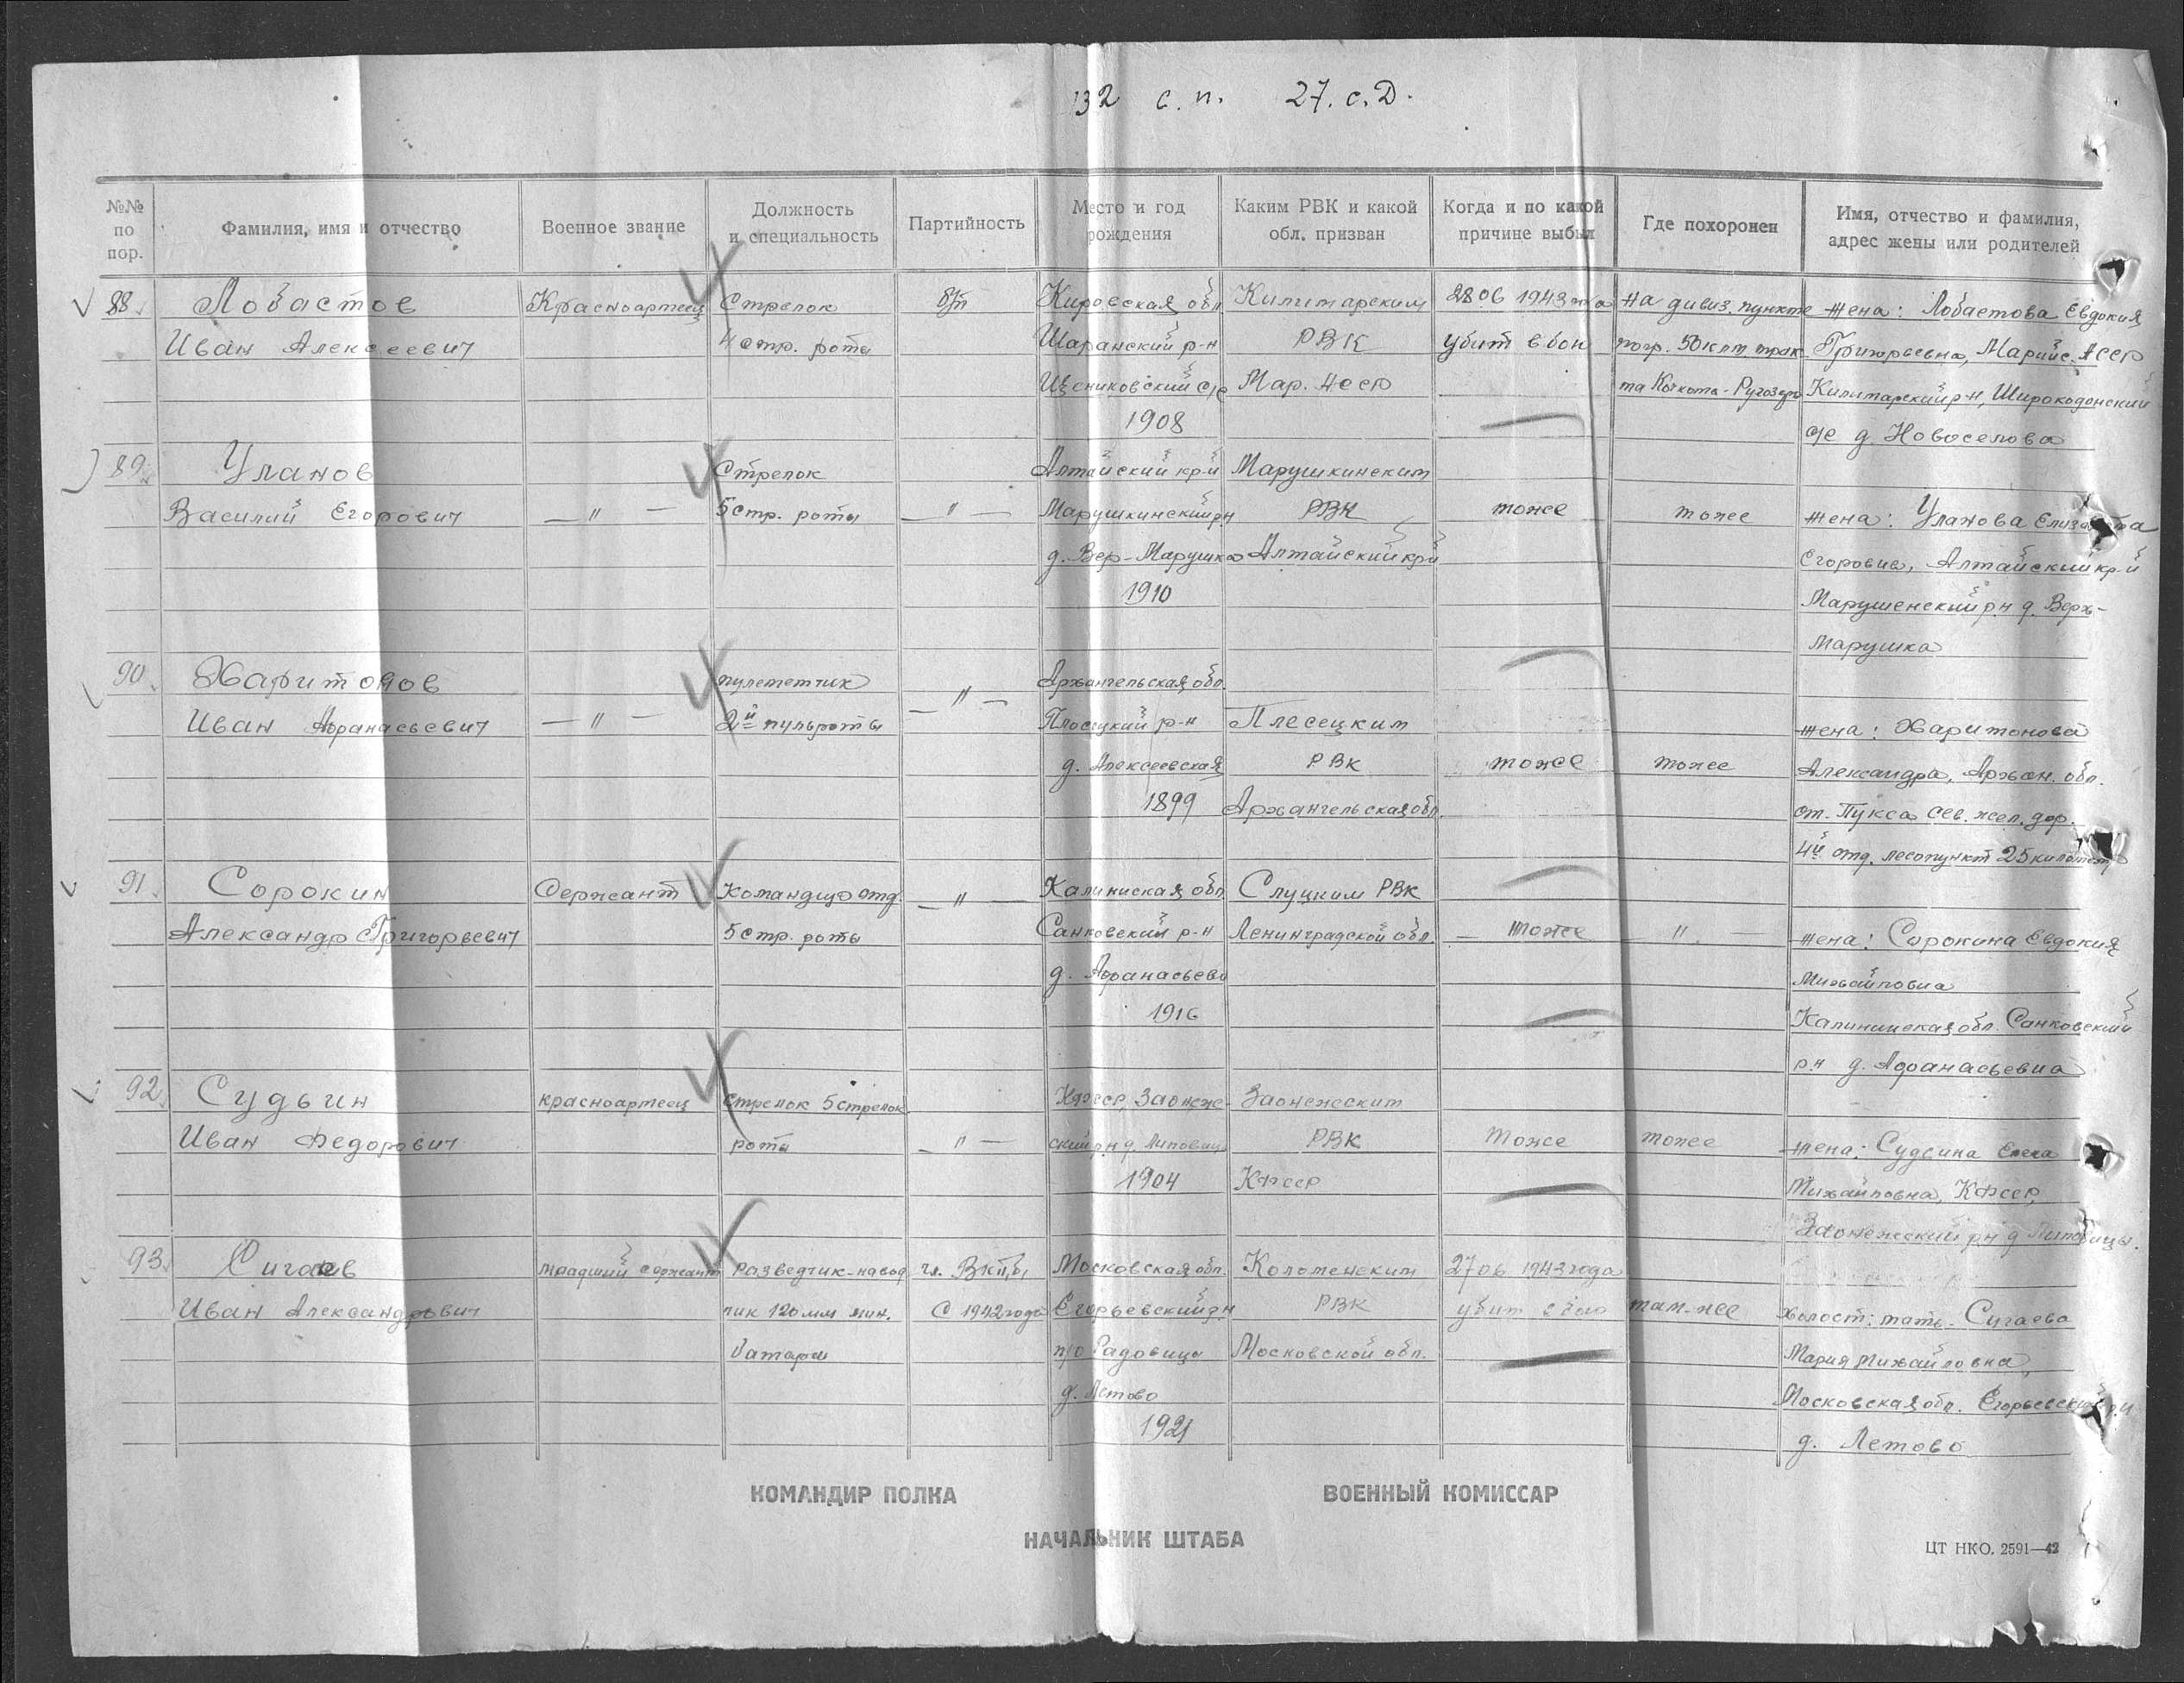 132 с.п. 27. с.Д.
№№ по пор.
Фамилия, имя и отчество
Военное звание
Должность и специальность
Партийность
Место и год рождения
Каким РВК и какой обл. призван
Когда и по какой причине выбыл
Где похоронен
Имя, отчество и фамилия, адрес жены или родителей
88 Лобастов Красноармеец Стрелок б/п Кировская обл Килемарским 28 06 1943 на дивиз. пункте жена: Лобастова Евдокия
Иван Алексеевич 4 стр. роты Шаранский р-н РВК убит в бою погр. 50 клм трак Григорьевна, Марийс. АССР
с/с Мар. АССР та Кочкома-Ругозеро Килемарский р-н,
1908 с/с д. Новоселова
89 Уланов Стрелок Алтайский кр-й Марушкинским
Василий Егорович —"— 5 стр. роты —"— Марушкинский рн РВК тоже тоже жена: Уланова Елизавета
д. Вер-Марушка Алтайский кр-й Егоровна, Алтайский кр-й
1910 Марушенский р-н д. Верх-
Марушка
90 Харитонов пулеметчик Архангельская обл.
Иван Афанасьевич —"— 2й пульроты —"— Плесецкий р-н Плесецким жена: Харитонова
д. Алексеевская РВК тоже тоже Александра, Архан. обл.
1899 Архангельская обл. ст. Пукса Сев. жел. дор.
4й отд. лесопункт 25 километр
91 Сорокин Сержант Командир отд. —"— Калининская обл. Слуцким РВК
Александр Григорьевич 5 стр. роты Санковский р-н Ленинградской обл. — тоже " — жена: Сорокина Евдокия
д. Афанасьево Михайловна
1916 Калининская обл. Санковский
р-н д. Афанасьевна
92 Судьин красноармеец стрелок 5 стрелок. КФССР, Заонеж- Заонежским
Иван Федорович роты —"— ский р-н д. Липовицы РВК тоже тоже жена: Судьина Елена
1904 КФССР Михайловна, КФССР,
Заонежский р-н д Липовицы.
93 Сигаев младший сержант Разведчик-навод чл. ВКП(б) Московская обл. Коломенским 27 06 1943 года
Иван Александрович чик 120 мм мин. С 1942 года Егорьевский рн РВК убит в бою там-же холост: мать- Сигаева
батареи п/о Радовицы Московской обл. Мария Михайловна,
д. Летово Московская обл. Егорьевский р-н
1921 д. Летово
КОМАНДИР ПОЛКА ВОЕННЫЙ КОМИССАР
НАЧАЛЬНИК ШТАБА
ЦТ НКО. 2591—42